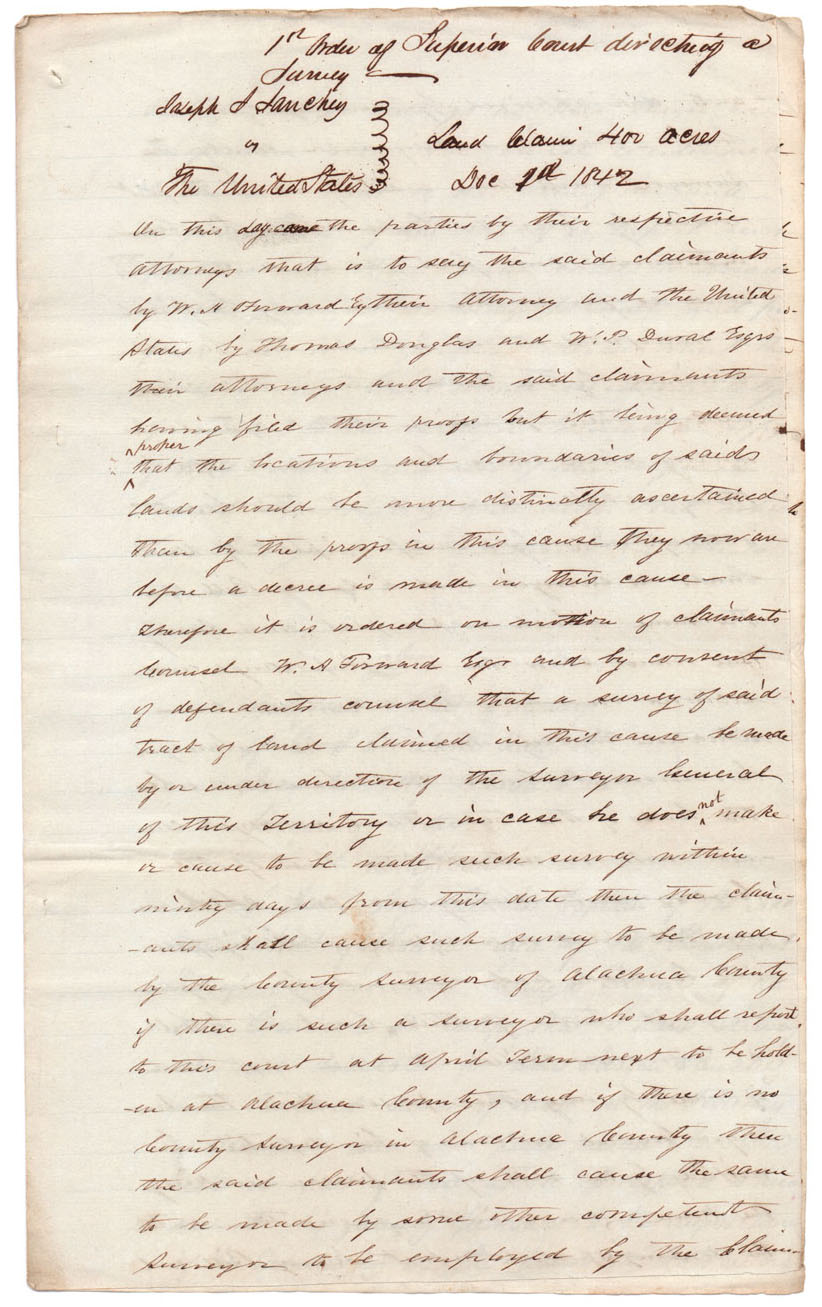 1st Order of Superior Court directing a
Survey
Joseph S Sanchez
vs
Land Claim 400 acres
The United States
Dec 1st 1842
On this day came the parties by their respective
attorneys that is to say the said claimants
by W. A Forward Esq their attorney and the United
States by Thomas Douglas and W. P. Duval Esqrs
their attorneys and the said claimants
having filed their proofs but it being deemed
proper
that the locations and boundaries of said
lands should be more distinctly ascertained
than by the proofs in this cause they now are
before a decree is made in this cause—
Therefore it is ordered on motion of claimants
Counsel W. A Forward Esqr and by consent
of defendants counsel that a survey of said
tract of land claimed in this cause be made
by or under direction of the Surveyor General
of this Territory or in case he does not make
or cause to be made such survey within
ninety days from this date then the claim-
-ants shall cause such survey to be made
by the County Surveyor of Alachua County
if there is such a surveyor who shall report
to this court at April Term next to be hold-
-en at Alachua County, and if there is no
County Surveyor in Alachua County then
the said claimants shall cause the same
to be made by some other competent
Surveyor to be employed by the Claim-